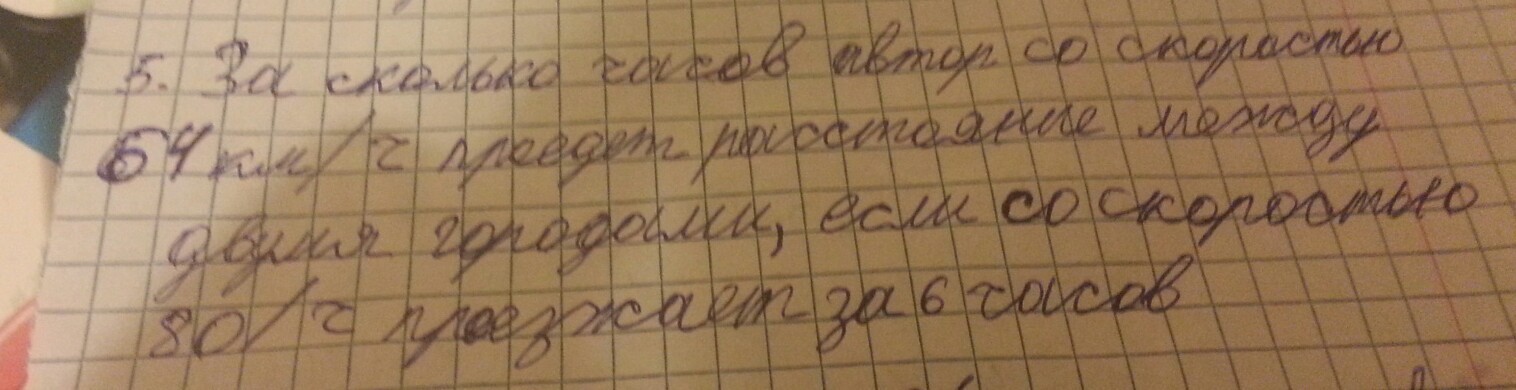 5. За сколько часов автор со скоростью
64 км/ч проедет расстояние между
двумя городами, если со скоростью
80/ч проезжает за 6 часов